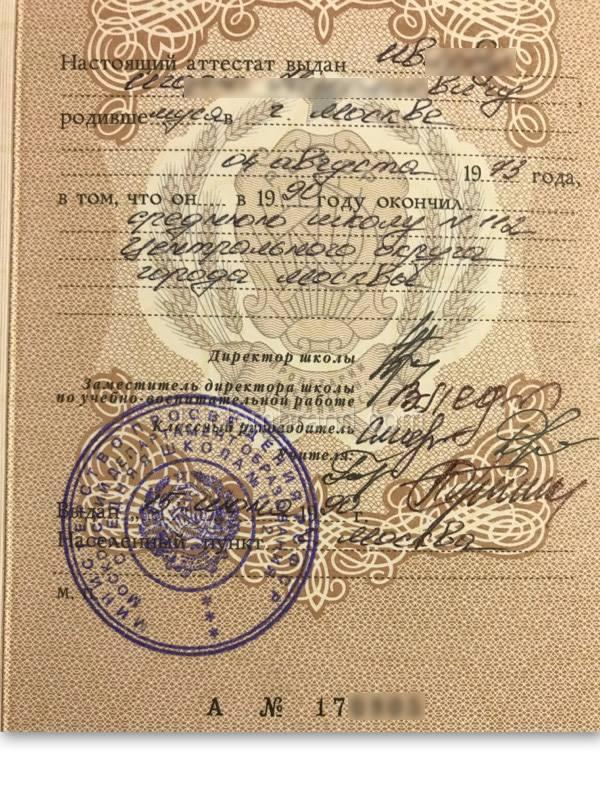 Настоящий аттестат выдан Ив
вичу
родившемуся в г. Москве
04 августа 1973 года,
в том, что он в 1990 году окончил
среднюю школу N 112
Центрального округа
города Москвы
Директор школы
Заместитель директора школы
по учебно-воспитательной работе
Классный руководитель
Учителя:
Выдан „25" июня 1990 г.
Населенный пункт Москва
МИНИСТЕРСТВО ПРОСВЕЩЕНИЯ РСФСР
М. П.
А № 17